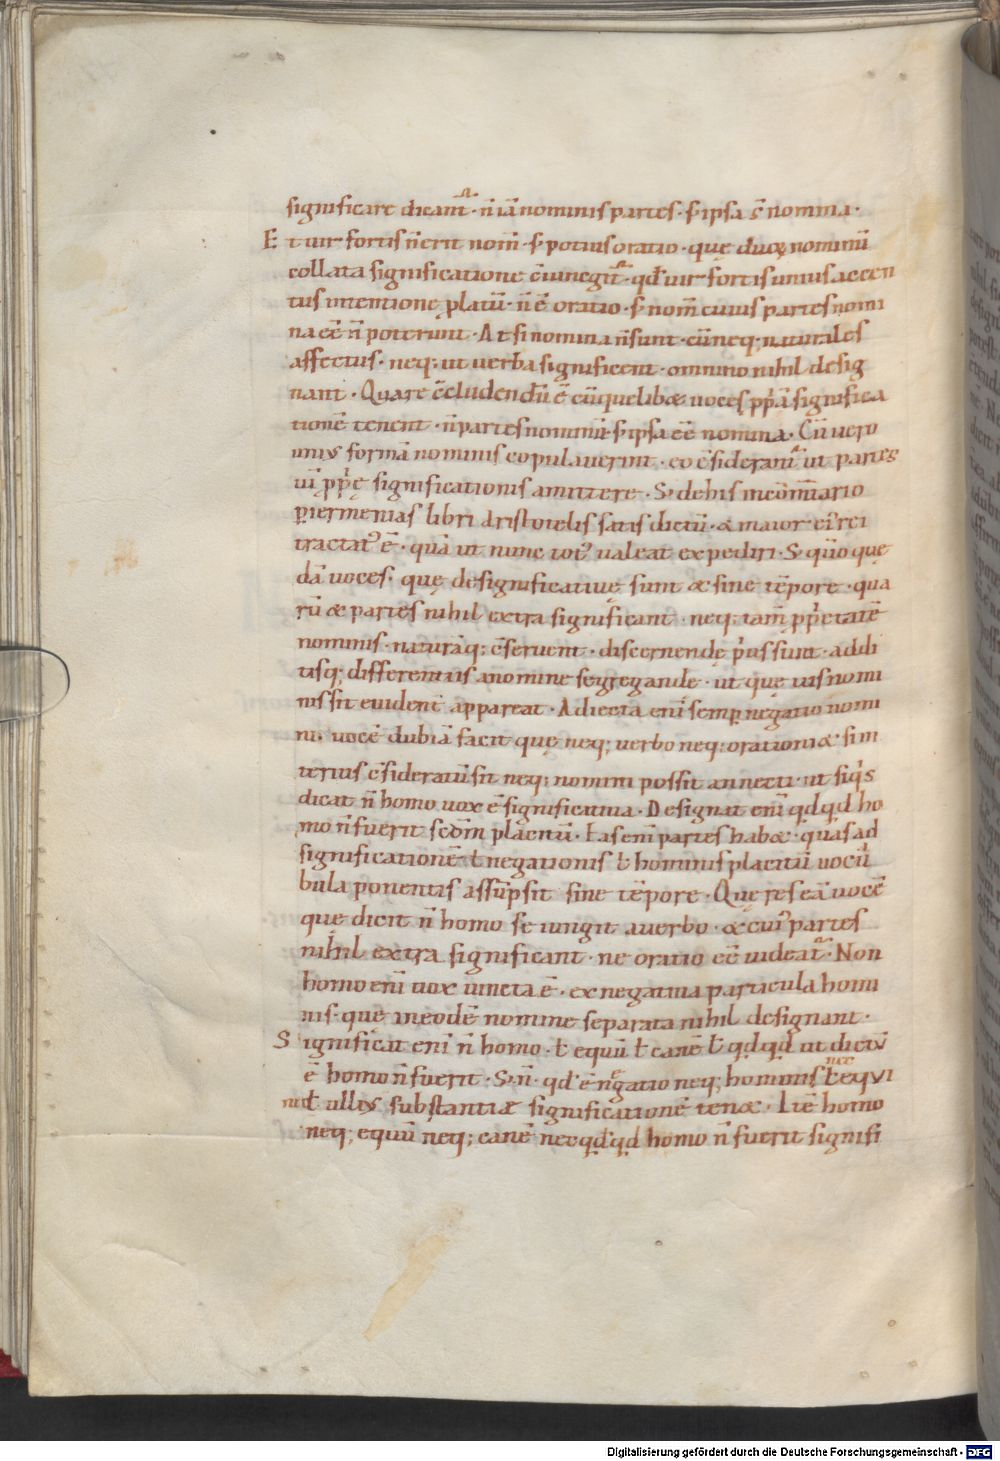 significare dicant᷑ · n̄ iā nominis partes · s; ipsa s̄ nomina ·
Et uir fortis n̄ erit nom̄ · s; potius oratio · quę duoꝝ nominū
collata significatione c̄iungit᷑ · qd̄ uir fortis unius accen
tus intentione platū · n̄ ē oratio · s; nom̄ cuius partes nomi
na eē n̄ poterunt · At si nomina n̄ sunt · cū neq; naturales
affectus · neq; ut uerba significent · omnino nihil desig
nant · Quare c̄cludendū ē cūque libet uoces pp̄ā significa
tionē tenent · n̄ partes nominū · s; ipsa eē nomina · Cū uero
unius formā nominis copulauerint · eo c̄siderant᷑ ut partes
uī pp̄ę significationis amittere · S; de his in com̄tario
periermenias libri aristotelis satis dictū · & maior ei᷒ rei
tractat᷒ ē · quā ut nunc tot᷒ ualeat expediri · S; qm̄ quę
dā uoces · quę designificatiuę sunt & sine tēpore · qua
rū & partes nihil extra significant · neq; tam̄ pp̄etatē
nominis · naturāq; c̄seruent · discernendę p̄us sunt · addi
tisq; differentiis a nomine segregandę · ut que uis nomi
nis sit euident᷑ appareat · Adiecta eni semp negatio nomi
ni · uocē dubiā facit quę neq; uerbo neq; orationi & sin
terius c̄sideratū sit neq; nomini possit annecti · ut siq̇s
dicat n̄ homo uox ē significatiua · Designat enī qd̄qd̄ ho
mo n̄ fuerit scdm placitū · Eas enī partes habet · quas ad
significationē ł negationis ł hominis placitū uocu̇
bula ponentis assūpsit sine tēpore · Quę res eā uocē
que dicit n̄ homo se iungit a uerbo · & cui᷒ partes
nihil extra significant · ne oratio eē uideat᷑ · Non
homo enī uox iuncta ē · ex negatiua particula homi
nis · quę in eodē nomine separata nihil designant ·
Significat enī n̄ homo · ł equū ł canē ł qd̄qd̄ ut dictū
ē homo n̄ fuerit · S; n̄ · qd̄ ē negatio neq; hominis nec ł equi
nec ł ullius substantiæ significationē tenet · Itē homo
neq; equū neq; canē nec qd̄qd̄ homo n̄ fuerit signifi
Digitalisierung gefördert durch die Deutsche Forschungsgemeinschaft - DFG